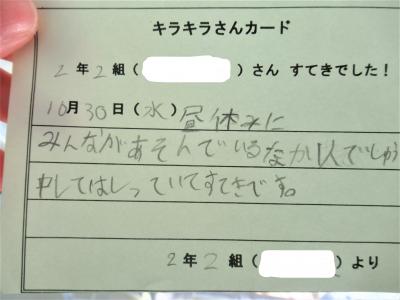 キラキラさんカード
2年2組( )さん すてきでした!
10月30日(水)昼休みに
みんながあそんでいるなか1人でしゅう
中してはしっていてすてきです。
2年2組( )より